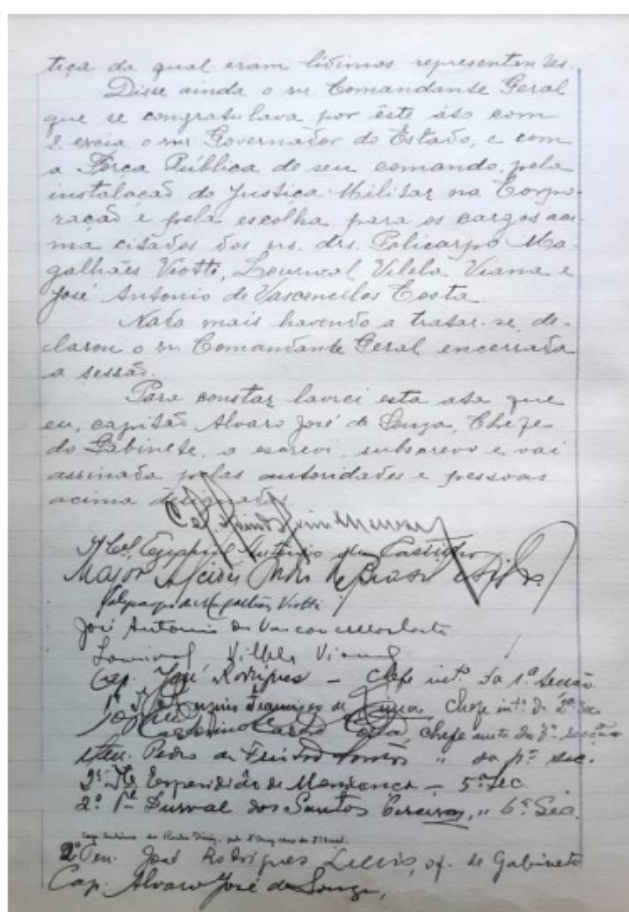 tiça da qual eram lidimos representantes.
Disse ainda o snr Comandante Geral
que se congratulava por êste ato com
S. excia o snr. Governador do Estado, e com
a Fôrça Pública de seu comando, pela
instalação da Justiça Militar na Corpo-
ração e pela escolha para os cargos aci-
ma citados dos srs. drs. Policarpo Ma-
galhães Viotti, Lourival Vilela Viana e
José Antonio de Vasconcelos Costa.
Nada mais havendo a tratar-se, de-
clarou o snr Comandante Geral encerrada
a sessão.
Para constar lavrei esta ata que
eu, capitão Alvaro José de Souza, Chefe
do Gabinete, a escrevi, subscrevo e vai
assinada pelas autoridades e pessoas
acima
Cel
T. Cel. Antonio de Castilho
Major Alcides
Policarpo de Magalhães Viotti
José Antonio de Vasconcellos Costa
Lourival Vilela Viana
Cap. José Rodrigues - Chefe int.º da 1ª Secção
Francisco de Chefe int.º da 2ª Sec
Costa, Chefe inte da 3ª secção
Pedro " da 4ª sec.
2º Esperidião de Mendonça - 5ª Sec.
2º Durval dos Santos " 6ª Sec.
2º Ten. José Rodrigues of. de Gabinete
Cap. Alvaro José de Souza,